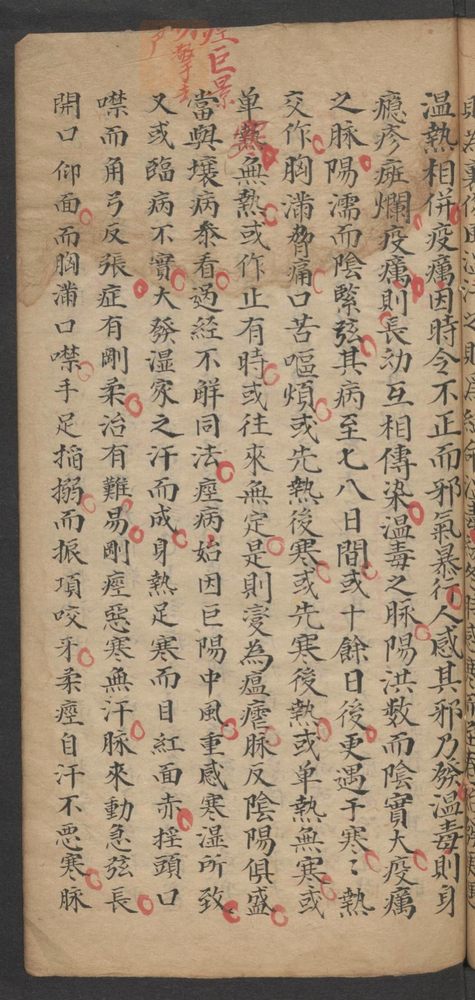 温熱相併疫癘因時令不正而邪氣暴行人感其邪乃發温毒則身
癮疹斑爛疫癘則長幼互相傳染温毒之脉陽洪数而陰實大疫癘
之脉陽濡而陰緊弦其病至七八日間或十餘日後更遇于寒〻熱
交作胸滿脅痛口苦嘔煩或先熱後寒或先寒後熱或单熱無寒或
单無熱或作止有時或往來無定是則變為瘟瘧脉反陰陽俱盛
當與壞病泰看過經不解同法痙病始因巨陽中風重感寒湿所致
又或臨病不實大發湿家之汗而成身熱足寒而目紅面赤摇頭口
噤而角弓反張症有剛柔治有難易剛痙惡寒無汗脉來動急弦長
開口仰面而胸滿口噤手足搐搦而振項咬牙柔痙自汗不悪寒脉
巨景